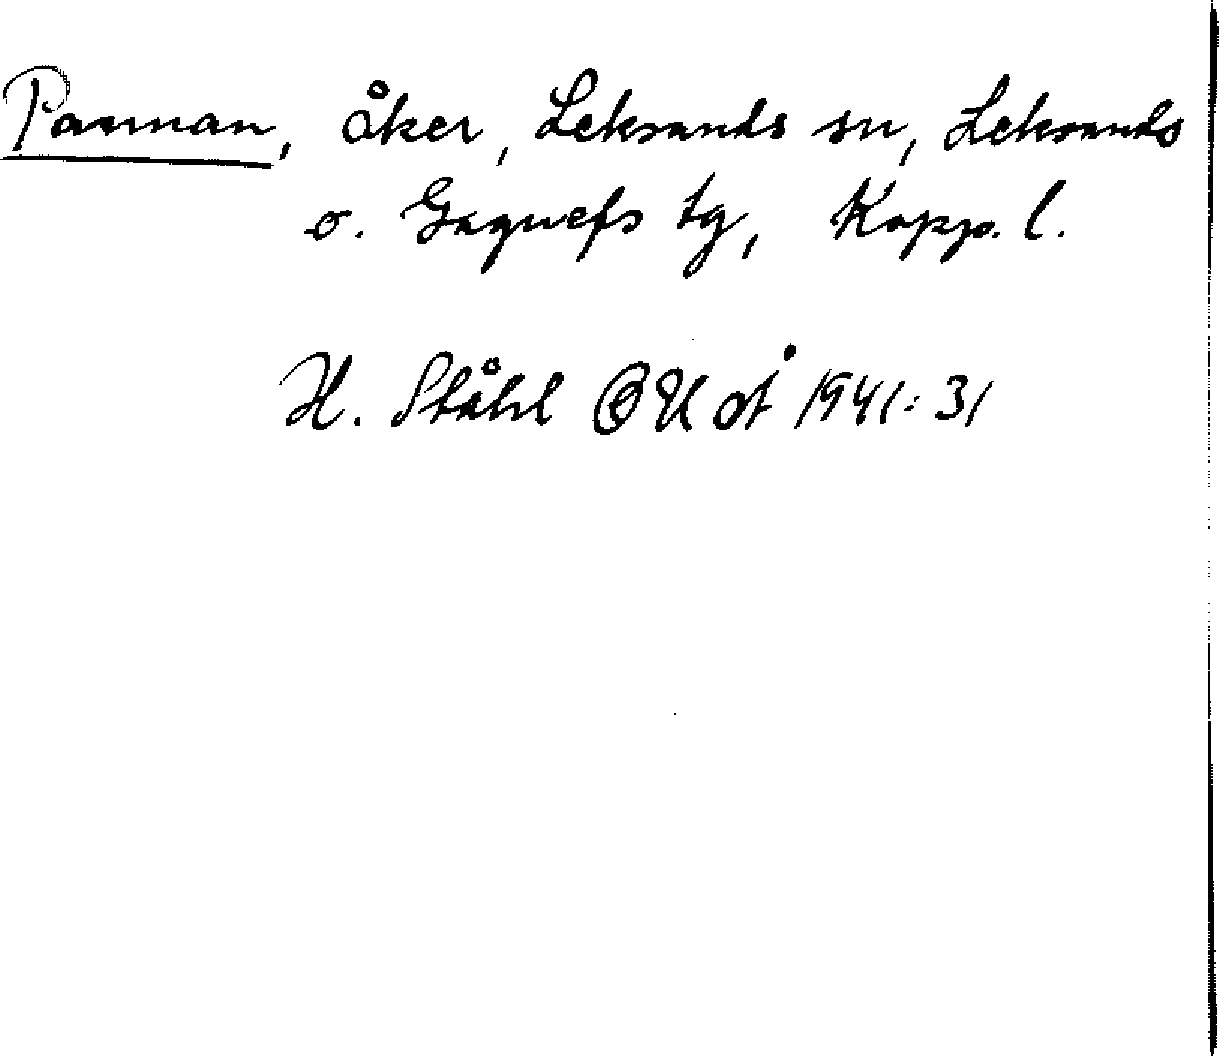 Panman, åker, Leksands sn, Leksands
o. Gagnefs tg, Kopp. l.
H. Ståhl OUÅ 1941: 31